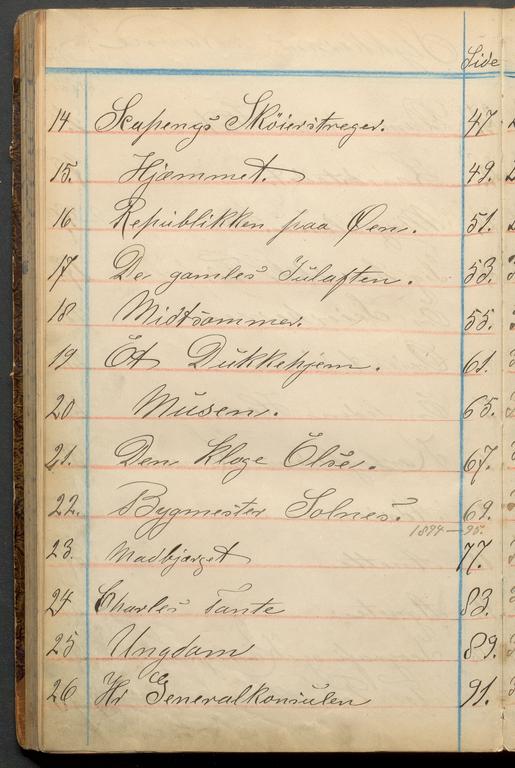 Side
14 Scapengs Sköierstreger. 47
15. Hjemmet. 49.
16 Republikken paa Øen. 51.
17 De gamles Julaften. 53.
18 Midtsommer. 55.
19 Et Dukkehjem. 61.
20 Musen. 65.
21. Den kloge Else. 67.
22. Bygmester Solnes. 69.
1894-95.
23. Madbjerget 77.
24 Charles Tante 83.
25 Ungdam 89.
26 Hr Generalkonsulen 91.